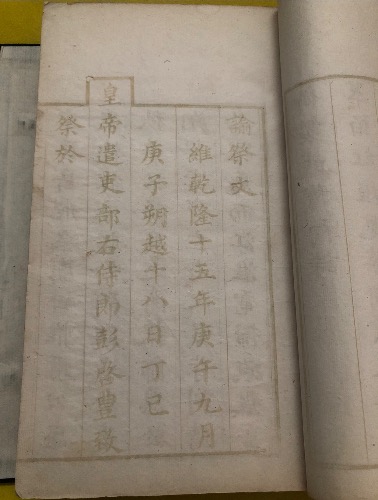 諭祭文
維乾隆十五年庚午九月
庚子朔越十八日丁巳
皇帝遣吏部右侍郎彭啓豐致
祭於